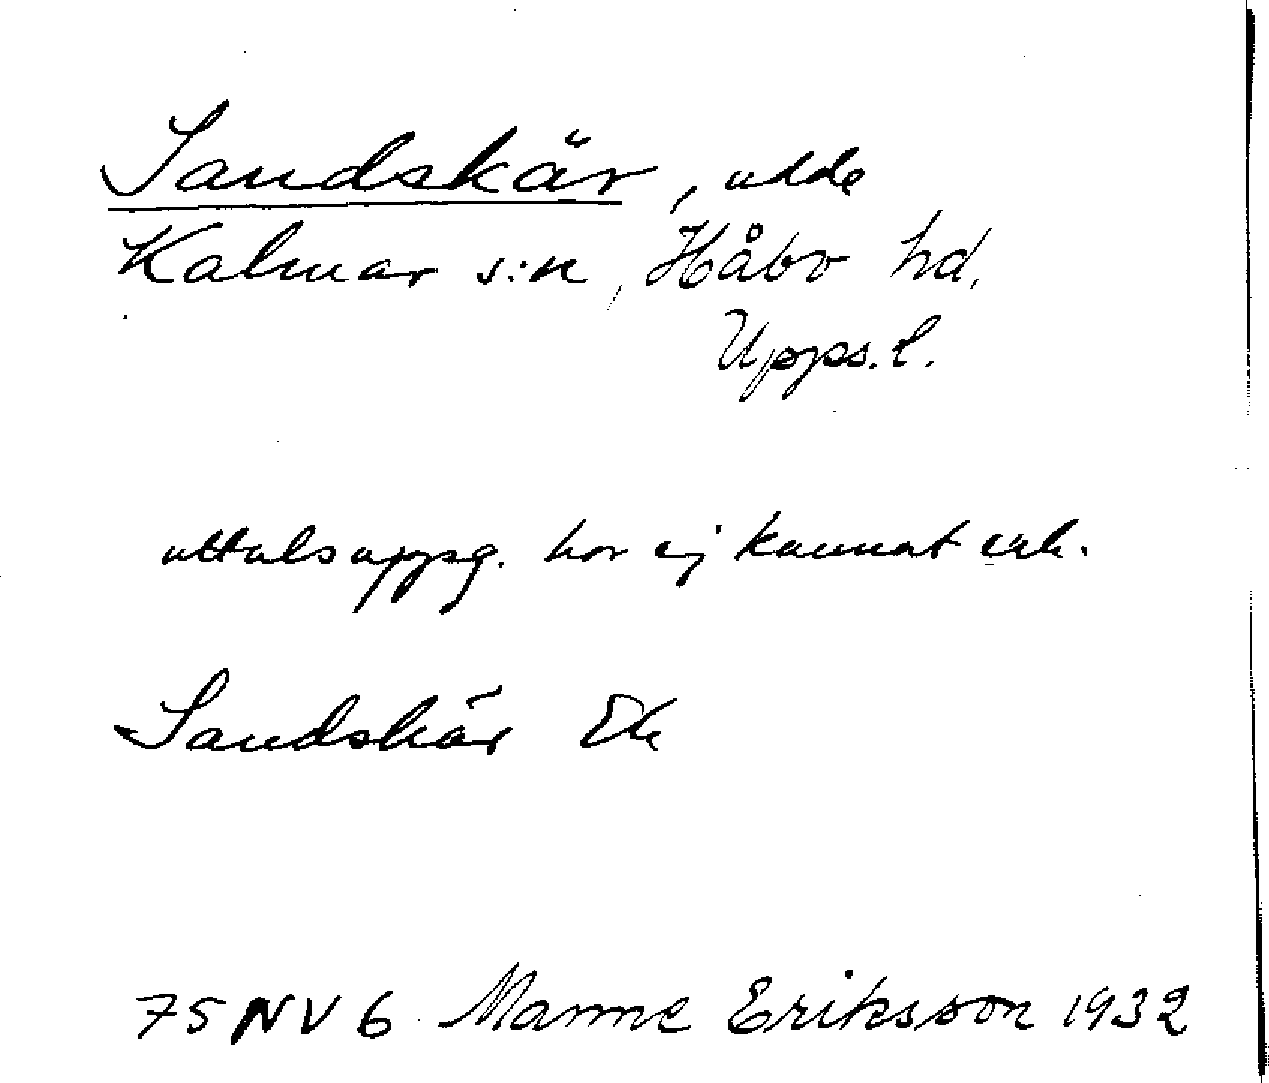 Sandskär, udde
Kalmar s:n, Håbo hd,
Upps. l.
uttalsuppg. har ej kunnat erh.
Sandskär Ek
75 NV 6 Manne Eriksson 1932